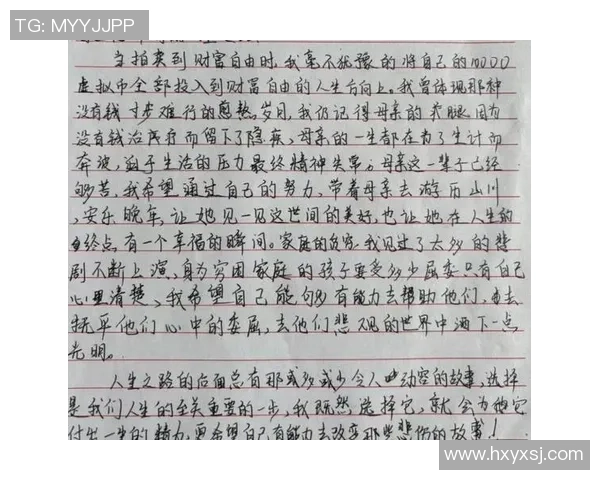 TG: MYYJJPP
当拍卖到财富自由时,我毫不犹豫的将自己的10000
虚拟币全部投入到财富自由的人生方向上。我曾体现那种
没有钱寸步难行的岁月,我仍记得母亲的腿因为
没有钱治疗而留下了隐疾、母亲的一生都在为了生计而
奔波,迫于生活的压力最终精神失常。母亲这一辈子已经
够苦,我希望通过自己的努力,带着母亲去游历山川
,安乐晚年,让她见一见这世间的美好,也让她在人生的
终点有一个幸福的瞬间。家庭的贫穷,我见过了太多的悲
剧不断上演,身为穷困家庭的孩子要受多少屈委只有自己
心里清楚、我希望自己能够有能力去帮助他们,去
抚平他们心中的委屈,去他们悲观的世界中洒下一点
光明。
人生之路的后面总有那或多或少令人动容的故事,选择
是我们人生的至关重要的一步,我既然选择它,就会为他
付出一生的精力,更希望自己有能力去改变那些悲伤的故事!
www.hxyxsj.com